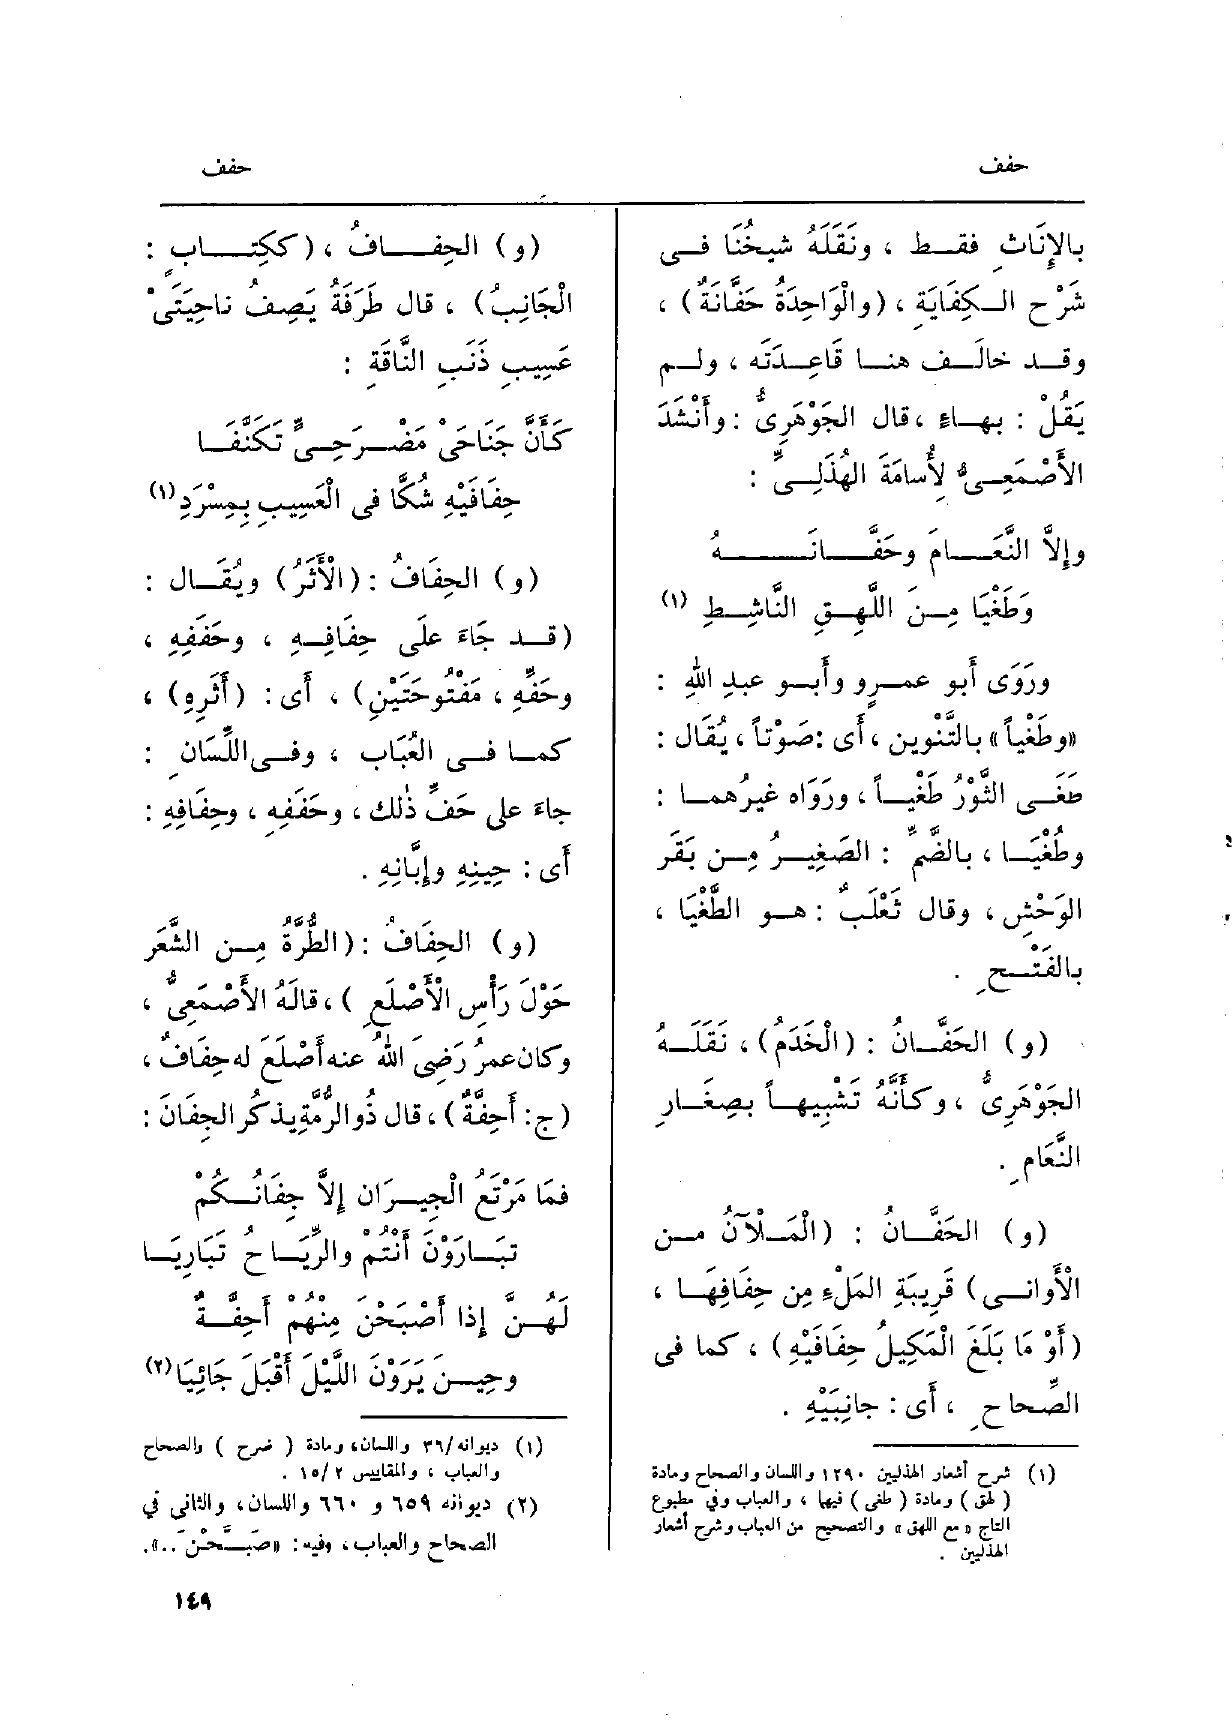 حفف
حفف
بالإِنَاثِ فقـط ، ونَقَلَهُ شيخُنَا فـى
شَرْح الـكِفَايَةِ ، (والْوَاحِدَةُ حَفَّانَةٌ) ،
وقـد خالَـف هنـا قَاعِـدَتَه ، ولـم
يَقُلْ : بهـاءٍ ، قال الجَوْهَرِىُّ : وأَنْشَدَ
الأَصْمَعِـىُّ لِأُسامَةَ الهُذَلِـىِّ :
وإِلاَّ النَّعَـامَ وحَفَّـانَـــهُ
وَطَغْيَا مِـنَ اللَّهِـقِ النَّاشِـطِ (١)
ورَوَى أَبو عمـرٍو وأَبـو عبدِ اللهِ :
«وطَغْياً» بالتَّنْوِين ، أَى : صَوْتاً ، يُقَال :
طَغَـى الثَّوْرُ طَغْيـاً ، ورَوَاه غيرُهمـا :
وطُغْيَـا ، بالضَّمِّ : الصَغِيـرُ مِـن بَقَر
الوَحْشِ ، وقال ثَعْلَبٌ : هـو الطَّغْيَا ،
بالفَتْـحِ .
(و) الحَفَّـانُ : (الْخَدَمُ) ، نَقَلَـهُ
الجَوْهَرِىُّ ، وكَأَنَّهُ تَشْبِيهـاً بصِغَـارِ
النَّعَامِ .
(و) الحَفَّـانُ : (الْمَـلْآنُ مـن
الْأَوانـى) قَرِيبَةِ المَلْءِ مِن حِفَافِهَـا ،
(أَوْ مَا بَلَغَ الْمَكِيلُ حِفَافَيْهِ) ، كما فى
الصِّحاحِ ، أَى : جانِبَيْهِ .
(١) شرح أشعار الهذليين ١٢٩٠ واللسان والصحاح ومادة
( لهق ) ومادة ( طغى ) فيها ، والعباب وفي مطبوع
التاج « مع اللهق » والتصحيح من العباب وشرح أشعار
الهذليين .
(و) الحِفـــافُ ، (ككِتــابٍ :
الْجَانِبُ) ، قال طَرَفَةُ يَصِفُ ناحِيَتَىْ
عَسِيبِ ذَنَبِ النَّاقَةِ :
كَأَنَّ جَنَاحَىْ مَضْـرَحِـىٍّ تَكَنَّفَـا
حِفَافَيْهِ شُكَّا فى الْعَسِيبِ بِمِسْرَدِ (١)
(و) الحِفَافُ : (الْأَثَرُ) ويُقَـال :
(قـد جَاءَ علَى حِفَافِـهِ ، وحَفَفِهِ ،
وحَفِّهِ ، مَفْتُوحَتَيْنِ) ، أَى : (أَثَرِهِ) ،
كمـا فـى العُبَاب ، وفـى اللِّسَانِ :
جاءَ على حَفِّ ذٰلك ، وحَفَفِهِ ، وحِفَافِهِ :
أَى : حِينِهِ وإِبَّانِهِ .
(و) الحِفَافُ : (الطُّرَّةُ مِـن الشَّعَر
حَوْلَ رَأْسِ الْأَصْلَعِ ) ، قالَهُ الأَصْمَعِىُّ ،
وكان عمرُ رَضِىَ اللهُ عنه أَصْلَعَ له حِفَافٌ ،
(ج : أَحِفَّةٌ) ، قال ذُو الرُّمَّةِ يذكُر الجِفَانَ :
فمَا مَرْتَعُ الْجِيـرَان إِلاَّ جِفَانُـكُمْ
تبَـارَوْنَ أَنْتُمْ والرِّيَـاحُ تَبَارِيَـا
لَهُـنَّ إِذا أَصْبَحْنَ مِنْهُمْ أَحِفَّـةٌ
وحِيـنَ يَرَوْنَ اللَّيْلَ أَقْبَلَ جَائِيَا (٢)
(١) ديوانه/٣٦ واللسان، ومادة ( ضرح ) والصحاح
والعباب ، والمقاييس ١٥/٢ .
(٢) ديوانه ٦٥٩ و ٦٦٠ واللسان، والثانى في
الصحاح والعباب، وفيه : «صَبَّـحْنَ ..».
١٤٩